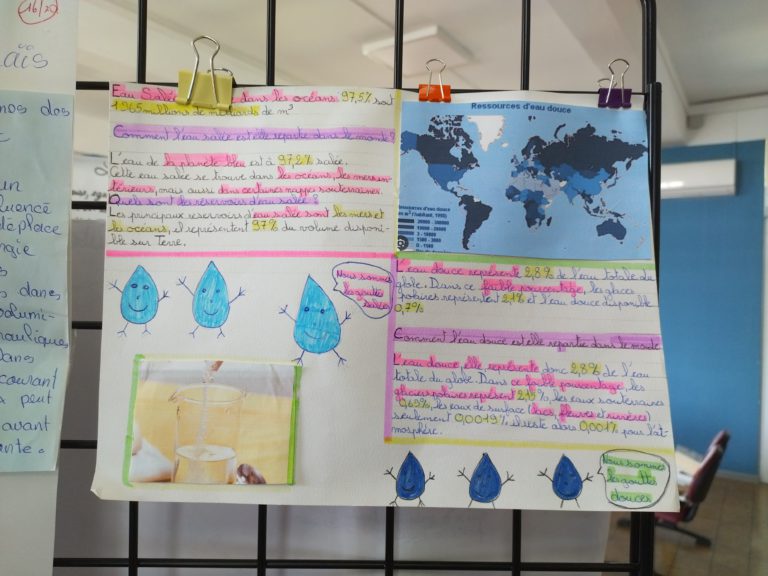 16/20
aïs
nos dos
un
quencé
déplace
gie
s
s dans
olumi-
rauliques
Dans
courant
x peut
avant
ante.
Eau Salée dans les océans 97,5% soit
1365 millions de milliards de m³
Comment l'eau salée est elle repartie dans le monde?
L'eau de la planète bleu est à 97,2% salée.
Cette eau salée se trouve dans les océans, les mers in-
térieures, mais aussi dans certaines nappes souterraines.
Quels sont les réservoirs d'eau salée?
Les principaux réservoirs d'eau salée sont les mers et
les océans, il représentent 97% du volume disponi-
ble sur Terre.
Nous sommes
les gouttes
salées
Ressources d'eau douce
Ressources d'eau douce
en m³ (habitant, 1995)
L'eau douce représente 2,8% de l'eau totale du
globe. Dans ce faible pourcentage, les glaces
polaires représentent 2,1% et l'eau douce disponible
0,7%
Comment l'eau douce est elle repartie dans le monde
L'eau douce, elle représente donc 2,8% de l'eau
totale du globe. Dans ce faible pourcentage, les
glaciers polaires représent 2,15%, les eaux souterraines
0,63%, les eaux de surface (lacs, fleuves et rivières)
seulement 0,0019%, il reste alors 0,001% pour l'at-
mosphère.
Nous sommes
les gouttes
douces